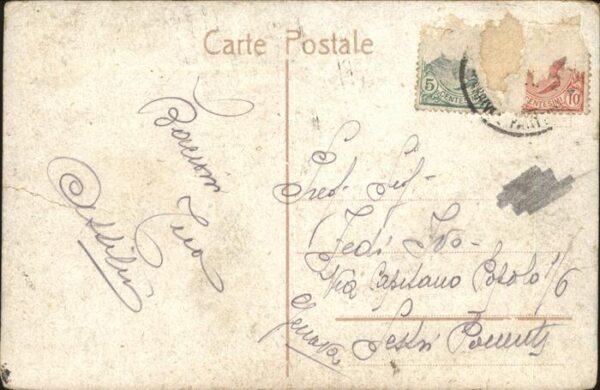 Carte Postale
5
CENTESIMI
CENTESIMI 10
Bacioni
Tuo
Attilio
Preg. Sig.
Fedi Ivo
Via Capitano
Sestri Ponente
Genova